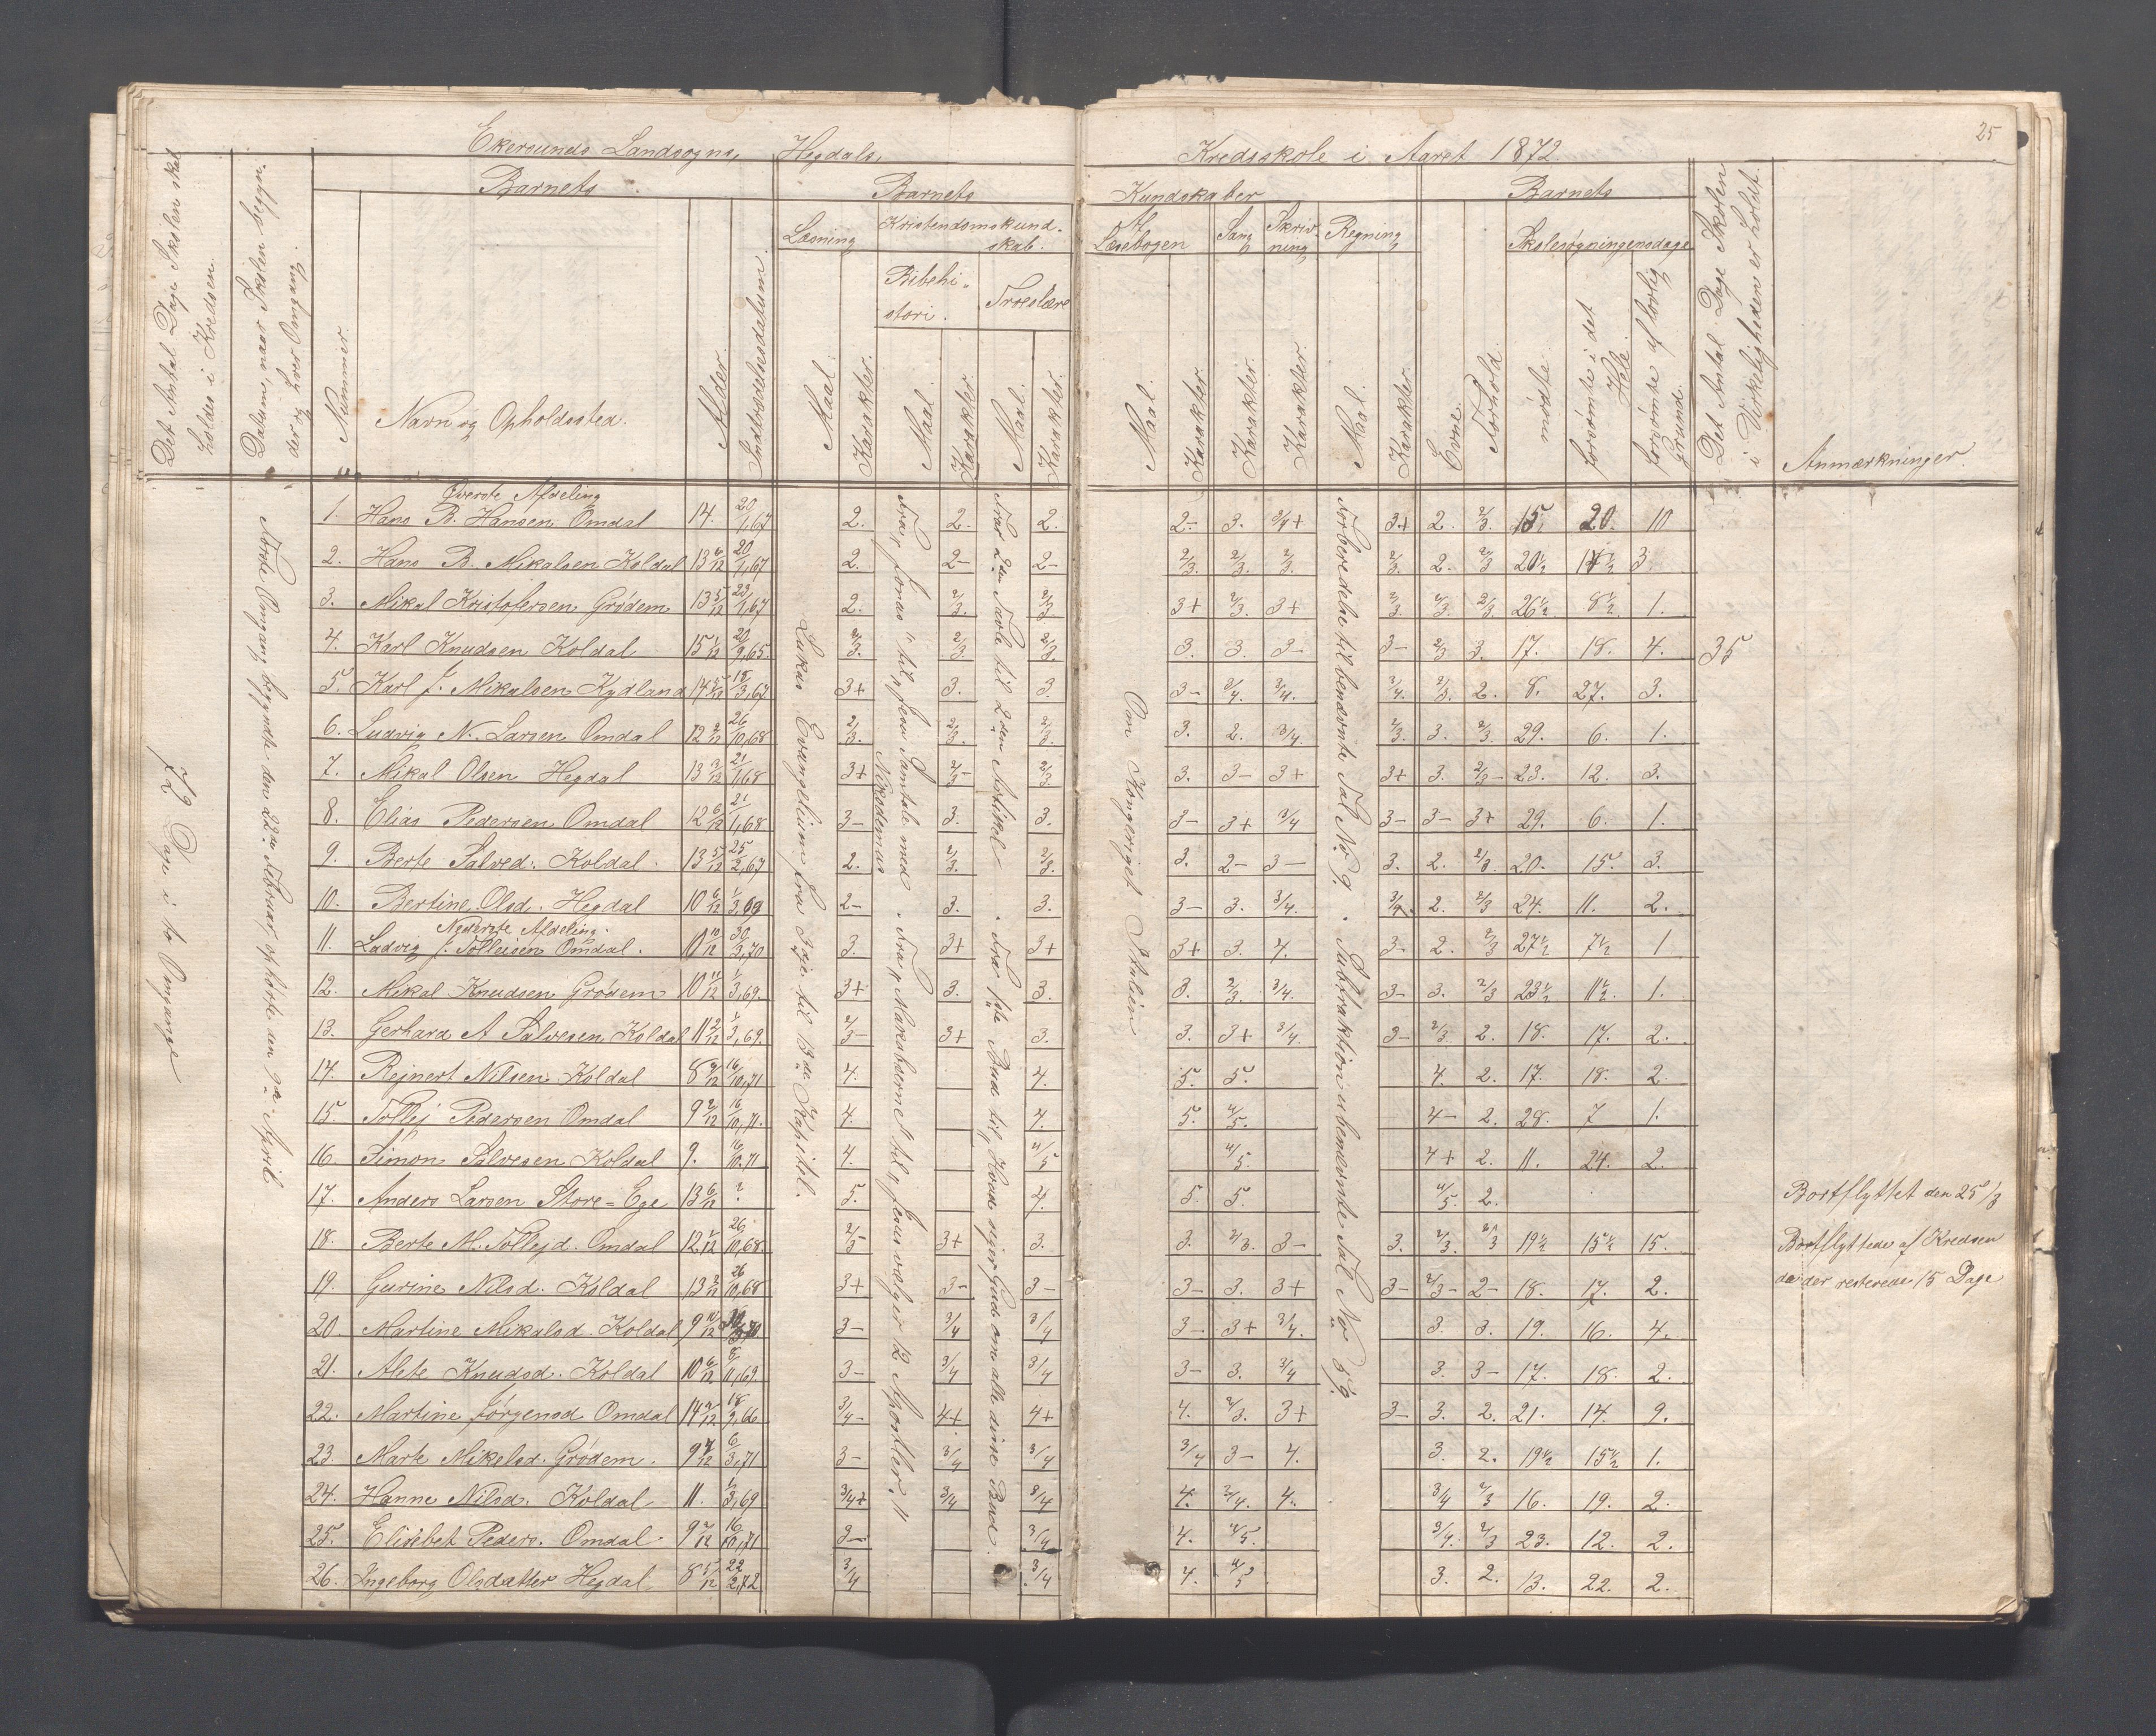 25
Ekersunds Landsogns, Hegdals, Kredsskole i Aaret 1872.
Det Antal Dage Skolen skal holdes i Kredsen.
Datum, naar Skolen begynder og hver Omgang.
Barnets
Nummer.
Navn og Opholdssted.
Alder.
Indtrædelsesdatum.
Barnets Kundskaber
Læsning
Maal.
Karakter.
Kristendomskundskab.
Bibelhistori.
Maal.
Karakter.
Troeslære
Maal.
Karakter.
Af Læsebogen
Maal.
Karakter.
Sang
Karakter.
Skrivning
Karakter.
Regning
Maal.
Karakter.
Barnets
Evne.
Forhold.
Skolesøgningensdage
mødte.
forsømte i det Hele.
forsømte af lovlig Grund.
Det Antal Dage Skolen i Virkeligheden er holdt.
Anmærkninger.
72 Dage i to Omgange
Første Omgang begyndte den 22de Februar, ophørte den 9de April.
Lukas Evangelium fra til 13de Kapitel.
Fra „Jonas“ til „Jesu Samtale med Nikodemus
Fra 2den Tavle til 2den Artikel
Om Kongeriget Italien
Forberedelse til benævnte Tal No 9. Subtraktion ubenævnte Tal No 59.
Øverste Afdeling
1. Hans B. Hansen Omdal 14. 20/1,67 2. 2- 2. 2- 3. 3/4+ 3+ 2. 2/3. 15. 20. 10
2. Hans B. Mikalsen Koldal 13 6/12 20/1,67 2. 2- 2- 2/3. 2/3. 2/3. 2/3. 2. 2/3 20½ 14½ 3.
3. Mikal Kristofersen Grødem 13 5/12 23/1,67 2. 2/3. 2/3 3+ 2/3. 3+ 2/3. 2/3. 2/3. 26½ 8½ 1.
4. Karl Knudsen Koldal 15 1/12 20/9,65. 2/3. 2/3. 2/3. 3. 3. 3- 3- 2/3 3. 17. 18. 4. 35
5. Karl J. Mikalsen Kydland 14 5/12 18/3,67 3+ 3. 3. 3- 3/4. 3/4. 3/4. 2/3. 2. 8. 27. 3.
6. Ludvig N. Larsen Omdal 12 26/10,68 2/3. 2/3. 2/3. 3. 2. 3/4. 2/3. 3. 2/3. 29. 6. 1.
7. Mikal Olsen Hegdal 13 3/12 21/1,68 3+ 2/3- 2/3. 3. 3- 3+ 3+ 3. 2/3- 23. 12. 3.
8. Elias Pedersen Omdal 12 6/12 21/1,68 3- 3. 3. 3- 3+ 3/4 3- 3- 3+ 29. 6. 1.
9. Berte Salved. Koldal. 13 5/12 25/2,67 2. 2/3. 2/3. 3. 2- 3- 3. 2. 2/3. 20. 15. 3.
10. Bertine Olsd. Hegdal 10 6/12 1/3,69 2- 3. 3. 3- 3. 3/4. 3/4. 2. 2/3 24. 11. 2.
Nederste Afdeling.
11. Ludvig J. Tolleisen Omdal. 10 10/12 30/3,70 3. 3+ 3+ 3+ 3. 4. 3- 2. 2/3 27½ 7½ 1
12. Mikal Knudsen Grødem 10 11/12 1/3,69. 3+ 3. 3. 3. 2/3. 3/4. 3- 3. 2/3 23½ 11½. 1.
13. Gerhard A Salvesen Koldal 11 2/12 1/3,69. 2/3- 3+ 3. 3. 3+ 3/4. 3- 2/3. 2. 18. 17. 2.
14. Rejnert Nilsen Koldal 8 9/12 16/10,71 4. 4. 5. 5. 4. 2. 17. 18. 2.
15. Tollej Pedersen Omdal 9 2/12 16/10,71. 4. 4. 5. 4/5. 4- 2. 28. 7 1.
16. Simon Salvesen Koldal 9. 16/10.71 4. 4/5 4/5. 4+ 2. 11. 24. 2.
17. Anders Larsen Store=Ege 13 6/12 ? 5. 4. 5. 5. 4/5. 2. Bortflyttet den 25/3
18. Berte M. Tollejd. Omdal 12 26/10,68. 2/3 3+ 3. 3. 2/3. 3- 3. 2/3. 2/3 19½ 15½ 15. Bortflyttede af Kredsen
19. Gurine Nilsd. Koldal 13 26/10,68 3+ 3- 3- 3- 3. 3+ 3- 2/3- 2- 18. 17. 2. da der resterede 15 Dage
20. Martine Mikalsd. Koldal 9 10/12 3- 3/4 3/4 3- 3+ 3/4. 3. 3. 19. 16. 4.
21. Alete Knudsd. Koldal 10 6/12 8/11,69. 3- 3/4 3/4 3- 3. 3/4 3. 3- 17. 18. 2.
22. Martine Jørgensd Omdal 14 18/9,66 3/4- 4+ 4+ 4. 2/3. 3+ 3- 3. 2. 21. 14. 9.
23. Marte Mikelsd. Grødem. 9 4/12 6/3,71 3- 3/4 3/4 3/4 3- 4. 3. 2. 19½ 15½ 1.
24. Hanne Nilsd. Koldal 11. 1/3,69 3/4+ 3/4 3/4 4. 3/4. 4. 3/4 2/3 16. 19. 2.
25. Elisebet Peders. Omdal. 9 2/12 16/10,71 3- 3/4 4. 4/5. 3/4. 2/3 23. 12. 2.
26. Ingeborg Olsdatter Hegdal 8 5/12 22/2,72 3/4 3/4 4. 4/5 3. 2. 13. 22. 2.